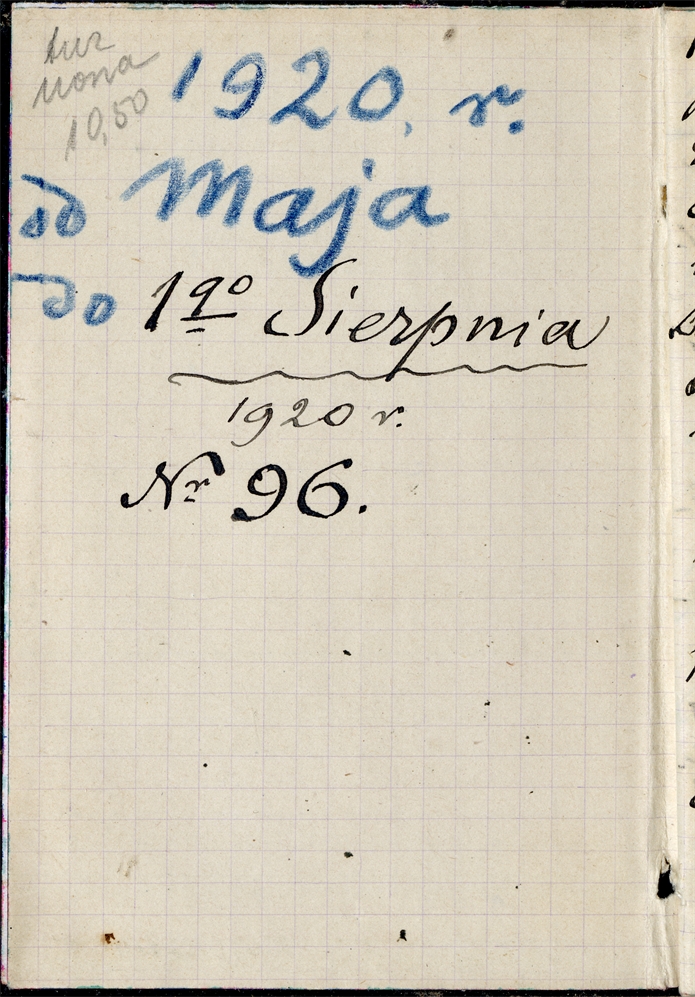 10,50
1920, r.
od Maja
do 1go Sierpnia
1920 r.
Nr 96.